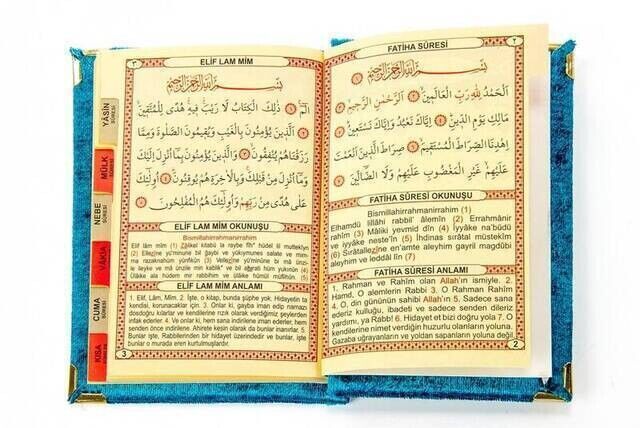 FATİHA SÛRESİ
٢
بِسْمِ اللّٰهِ الرَّحْمٰنِ الرَّحِيمِ
اَلْحَمْدُ لِلّٰهِ رَبِّ الْعَالَمِينَ اَلرَّحْمٰنِ الرَّحِيمِ
مَالِكِ يَوْمِ الدِّينِ اِيَّاكَ نَعْبُدُ وَاِيَّاكَ نَسْتَعِينُ
اِهْدِنَا الصِّرَاطَ الْمُسْتَقِيمَ صِرَاطَ الَّذِينَ اَنْعَمْتَ
عَلَيْهِمْ غَيْرِ الْمَغْضُوبِ عَلَيْهِمْ وَلَا الضَّالِّينَ
FATİHA SÛRESİ OKUNUŞU
Bismillahirrahmanirrahim (1)
Elhamdü lillâhi rabbil' âlemîn (2) Errahmânir
rahîm (3) Mâliki yevmid dîn (4) İyyâke na'büdü
ve iyyâke neste'în (5) İhdinas sırâtal müstekîm
(6) Sırâtallezîne en'amte aleyhim gayril magdûbi
aleyhim ve leddâl lîn (7)
FATİHA SÛRESİ ANLAMI
1. Rahman ve Rahîm olan Allah'ın ismiyle. 2.
Hamd, O alemlerin Rabbi 3. O Rahman Rahim
4. O, din gününün sahibi Allah'ın 5. Sadece sana
ederiz kulluğu, ibadeti ve sadece senden dileriz
yardımı, ya Rabb! 6. Hidayet et bizi doğru yola 7. O
kendilerine nimet verdiğin huzurlu olanların yoluna.
Gazaba uğrayanların ve yoldan sapanların yoluna değil.
2
٣
ELİF LAM MÎM
بِسْمِ اللّٰهِ الرَّحْمٰنِ الرَّحِيمِ
الٓمٓ ذٰلِكَ الْكِتَابُ لَا رَيْبَ فِيهِ هُدًى لِلْمُتَّقِينَ
اَلَّذِينَ يُؤْمِنُونَ بِالْغَيْبِ وَيُقِيمُونَ الصَّلٰوةَ وَمِمَّا
رَزَقْنَاهُمْ يُنْفِقُونَ وَالَّذِينَ يُؤْمِنُونَ بِمَا اُنْزِلَ اِلَيْكَ
وَمَا اُنْزِلَ مِنْ قَبْلِكَ وَبِالْاٰخِرَةِ هُمْ يُوقِنُونَ اُولٰئِكَ
عَلٰى هُدًى مِنْ رَبِّهِمْ وَاُولٰئِكَ هُمُ الْمُفْلِحُونَ
ELİF LAM MÎM OKUNUŞU
Bismillahirrahmanirrahim
Elif lâm mîm (1) Zâlikel kitâbü la raybe fîh* hüdel lil muttekîyn
(2) Ellezîne yü'minune bil ğaybi ve yükıymunes salate ve mim-
ma razaknahüm yünfikün (3) Vellezîne yü'minune bi mâ ünzi-
le ileyke ve mâ ünzile min kablik* ve bil ahırati hüm yûkınûn (4)
Ülâike ala hüdem mir rabbihim ve ülâike hümül müflihûn (5)
ELİF LAM MÎM ANLAMI
1. Elif, Lâm, Mim. 2. İşte, o kitap, bunda şüphe yok, Hidayetin ta
kendisi, korunacaklar için. 3. Onlar ki, gayba iman edip namazı
dosdoğru kılarlar ve kendilerine rızık olarak verdiğimiz şeylerden
infak ederler. 4. Ve onlar ki, hem sana indirilene iman ederler, hem
senden önce indirilene. Ahirete kesin olarak da bunlar inanırlar. 5.
Bunlar işte, Rabbilerinden bir hidayet üzerindedir ve bunlar, işte
bunlar o murada eren kurtulmuşlardır.
3
YÂSÎN
SÛRESİ
MÜLK
SÛRESİ
NEBE
SÛRESİ
VAKIA
CUMA
SÛRESİ
KISA